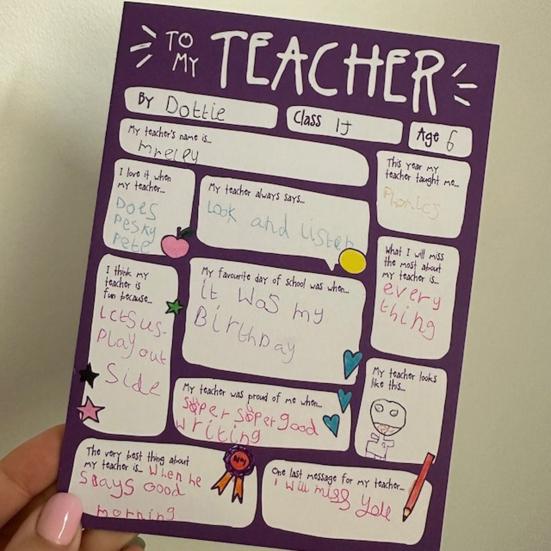 TO MY TEACHER
By Dottie
Class 1J
Age 6
My teacher's name is...
This year my
teacher taught me...
Phonics
I love it when
my teacher...
Does
Pesky
Pete
My teacher always says...
Look and listen
What I will miss
the most about
my teacher is...
every
thing
I think my
teacher is
fun because...
Letsus
Play out
Side
My favourite day of school was when...
it was my
BirthDay
My teacher looks
like this...
My teacher was proud of me when...
super super good
writing
The very best thing about
my teacher is... when he
says Good
morning
One last message for my teacher...
i will miss you